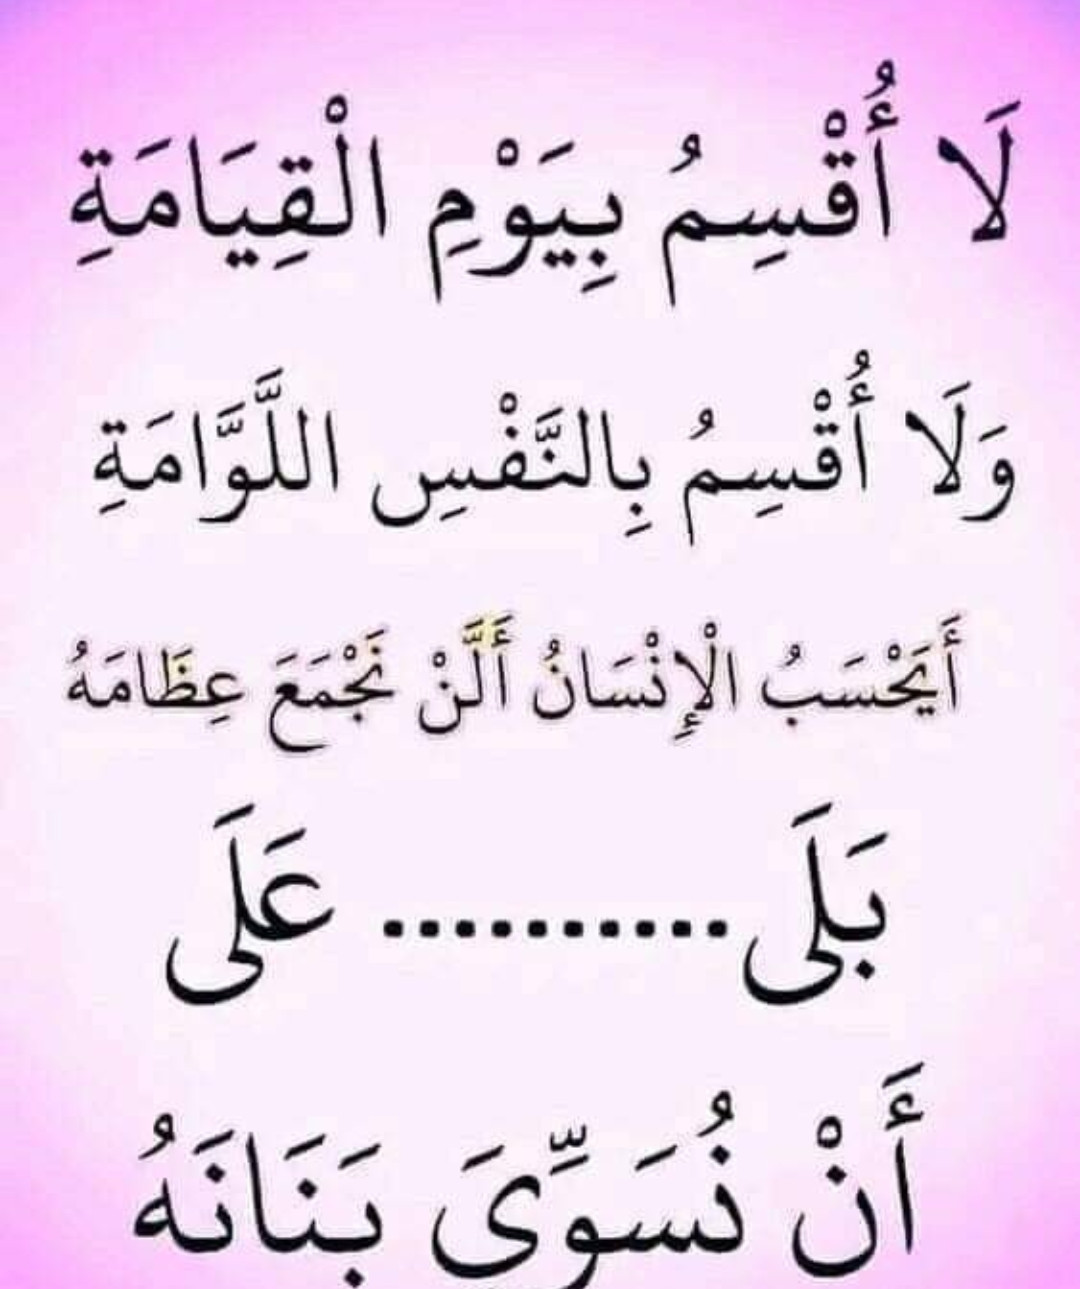 لَا أُقْسِمُ بِيَوْمِ الْقِيَامَةِ
وَلَا أُقْسِمُ بِالنَّفْسِ اللَّوَّامَةِ
أَيَحْسَبُ الْإِنْسَانُ أَلَّنْ نَجْمَعَ عِظَامَهُ
بَلَى .......... عَلَى
أَنْ نُسَوِّيَ بَنَانَهُ